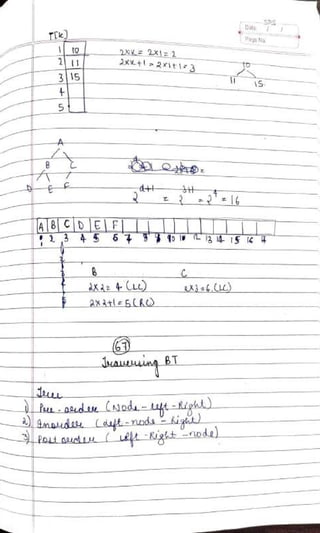 SPS
Date / /
Page No.
T[k]
1 10 2xk = 2x1 = 2
2 11 2xk+1 = 2x1+1 = 3
3 15
4
5
10
11 15
A
B C
D E F
2^d+1 = 2^3+1 = 2^4 = 16
A B C D E F
1 2 3 4 5 6 7 8 9 10 11 12 13 14 15 16
B C
2x2 = 4 (LC) 2x3 = 6 (LC)
2x2+1 = 5 (RC)
67
Traversing BT
Tree
1) Pre-order (Node - left - Right)
2) Inorder (Left - node - Right)
3) Post order (Left - Right - node)